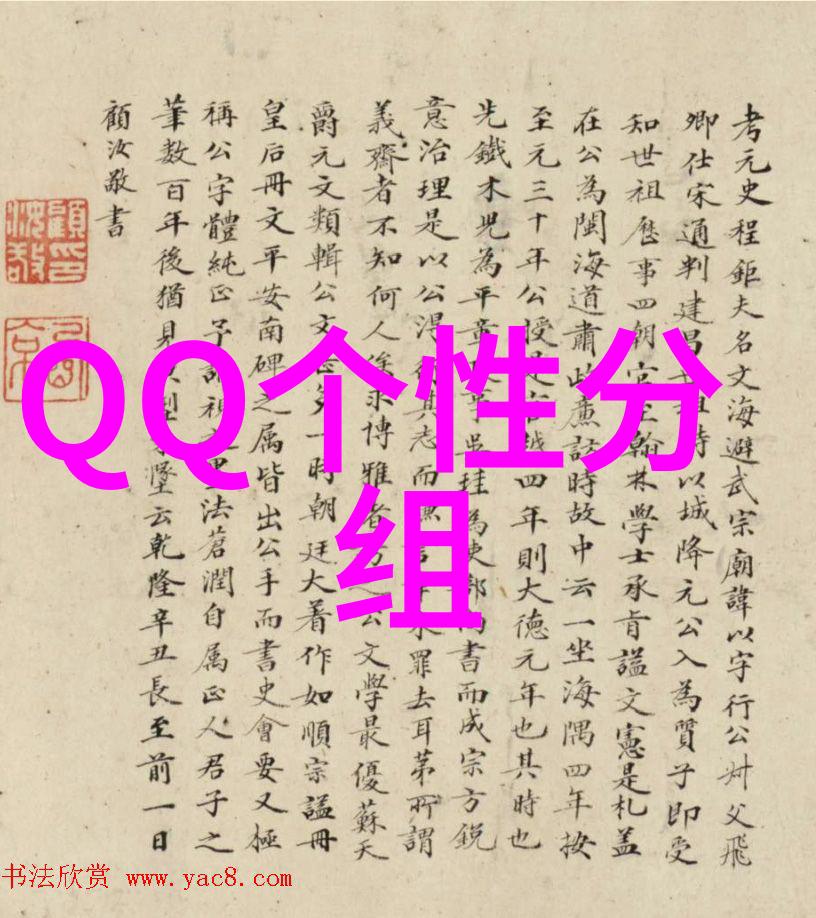 考元史程鉅夫名文海避武宗廟諱以字行公叔父飛
卿仕宋通判建昌時以城降元公入為質子即受
知世祖歷事四朝官至翰林學士承旨諡文憲是札蓋
在公為閩海道肅政廉訪時故中云一坐海隅四年按
至元三十年公授是官越四年則大德元年也其時也
先鐵木兒為平章事吳珪為吏部尚書而成宗方銳
意治理是以公得行其志而罪去耳苐所謂
義齋者不知何人俟求博雅者公文學最優蘇天
爵元文類輯公文一時朝廷大着作如順宗諡冊
皇后冊文平安南碑之属皆出公手而書史會要又極
稱公字體純正法蒼潤自属正人君子之
筆數百年後猶見型墜云乾隆辛丑長至前一日
顧汝敬書
QQ个性分
组
书法欣赏 www.yac8.com